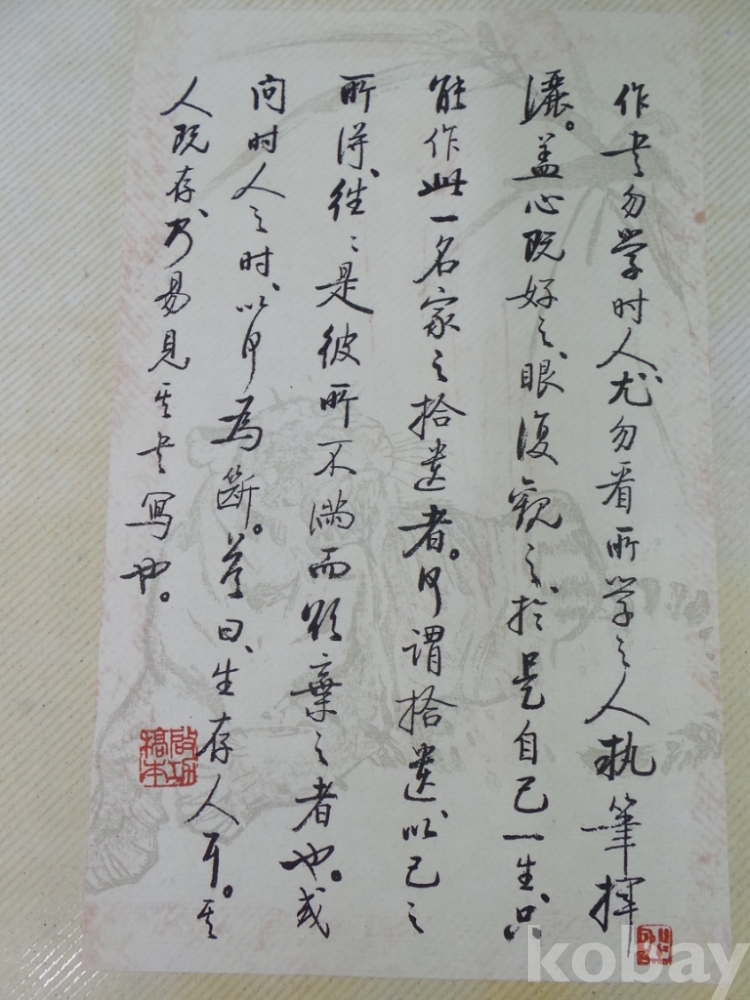 作书勿学时人尤勿看所学之人执筆揮
灑。盖心既好之、眼復观之、於是自己一生、只
能作此一名家之拾遗者。何謂拾遗以己之
所得、往〻是彼所不满而欲棄之者也。或
问时人之时、以何為断。答曰、生存人耳。其
人既存、乃易見其书写也。
启功
橋本
kobay